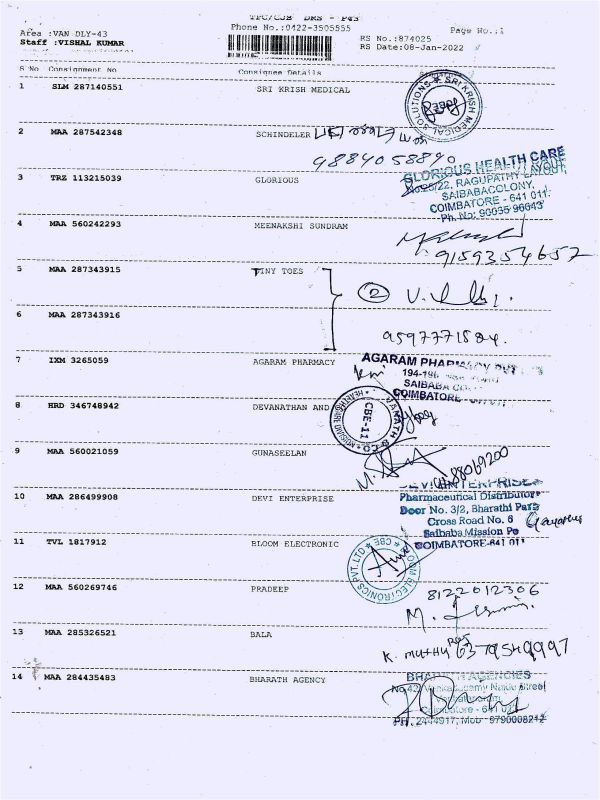 TPC/CJB DRS - P43
Phone No.:0422-3505555
Area :VAN DLY-43
Staff :VISHAL KUMAR
RS No.:874025
Page No.:1
RS Date:08-Jan-2022
S No Consignment No Consignee Details
1 SLM 287140551 SRI KRISH MEDICAL
SRI KRISH MEDICAL SOLUTIONS
2 MAA 287542348 SCHINDELER
9884058890
3 TRZ 113215039 GLORIOUS
GLORIOUS HEALTH CARE
No.25/22, RAGUPATHY LAYOUT,
SAIBABACOLONY,
COIMBATORE - 641 011.
Ph. No: 90035 96643
4 MAA 560242293 MEENAKSHI SUNDRAM
9159354657
5 MAA 287343915 TINY TOES
2
6 MAA 287343916
9597771584.
7 IXM 3265059 AGARAM PHARMACY
AGARAM PHARMACY
194-196
SAIBABA
COIMBATORE
8 HRD 346748942 DEVANATHAN AND
CBE-11
9 MAA 560021059 GUNASEELAN
10 MAA 286499908 DEVI ENTERPRISE
DEVI ENTERPRISES
Pharmaceutical Distributor
Door No. 3/2, Bharathi Park
Cross Road No. 6
Saibaba Mission Po
COIMBATORE-641 011
11 TVL 1817912 BLOOM ELECTRONIC
BLOOM ELECTRONICS PVT.LTD CBE
12 MAA 560269746 PRADEEP
8122012306
13 MAA 285326521 BALA
K. Muthu
6379549997
14 MAA 284435483 BHARATH AGENCY
BHARATH AGENCIES
No.42, Venkatasamy Naidu Street
Coimbatore - 641 0
PH: 2444917, Mob: 9790008212